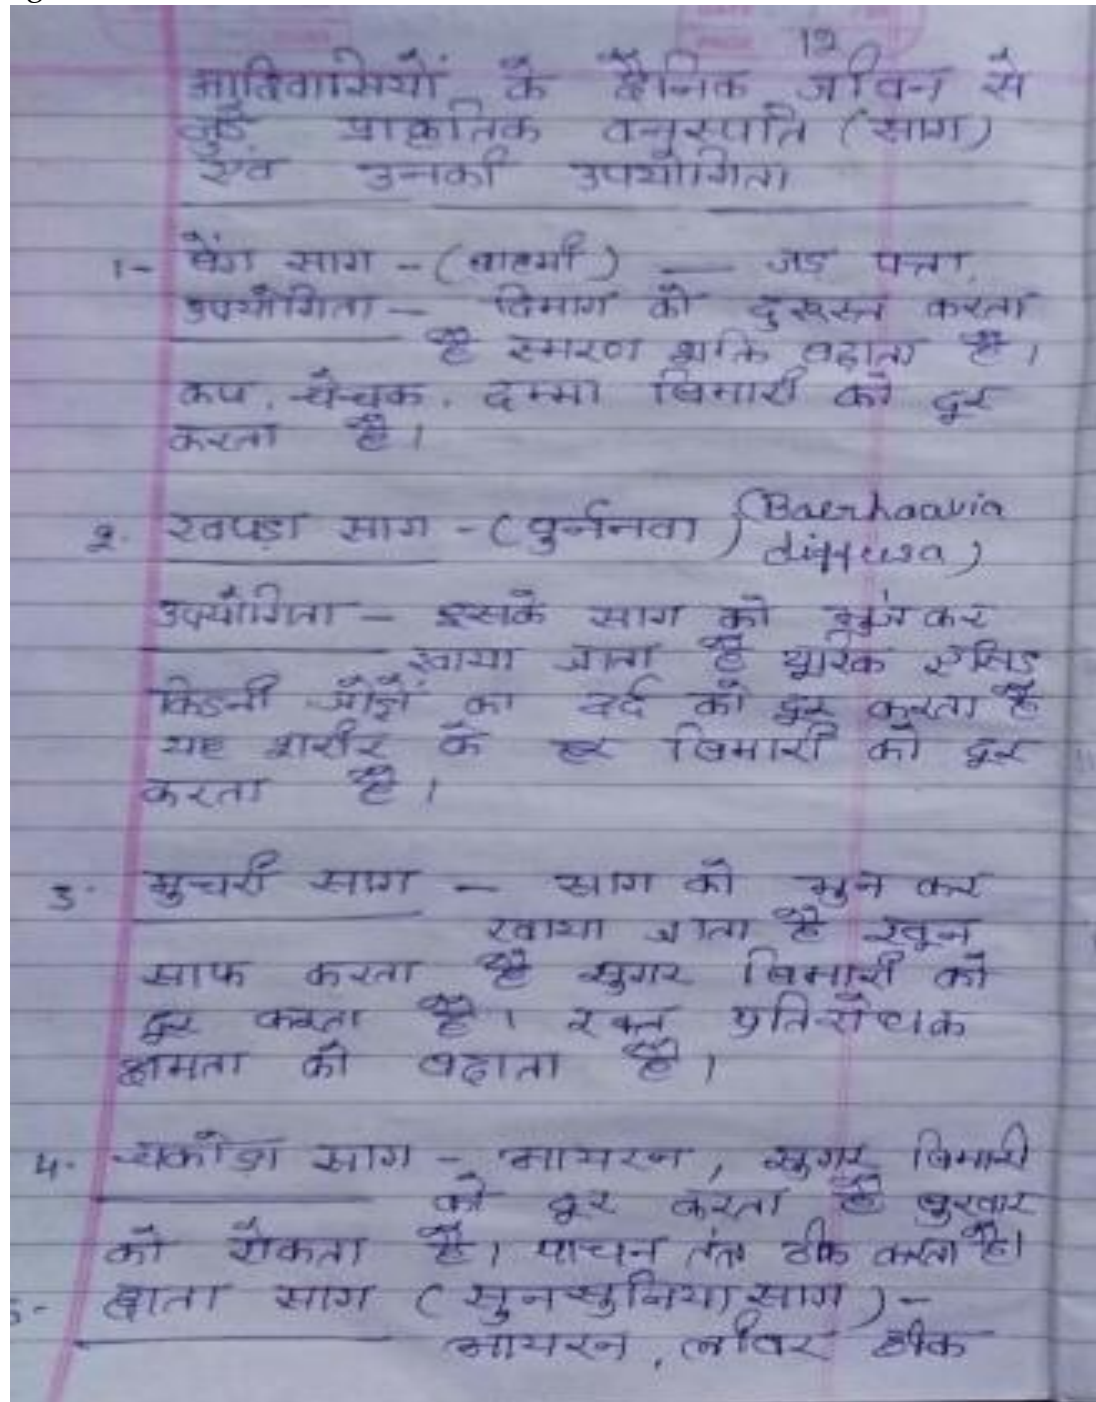 12
आदिवासियों के दैनिक जीवन से
जुड़े प्राकृतिक वनुस्पति (साग)
एवं उनकी उपयोगिता
1- बेंग साग - (ब्राहमी) — जड़ पत्ता
उपयोगिता - दिमाग को दुरूस्त करता
है स्मरण शक्ति बढ़ाता है।
कप, चेचक, दम्मा बिमारी को दूर
करता है।
2. खपड़ा साग - (पुर्ननवा) (Baerhaavia
diffusa)
उपयोगिता - इसके साग को भुंज कर
खाया जाता है यूरिक एसिड
किडनी जोड़ों का दर्द को दूर करता है
यह शरीर के हर बिमारी को दूर
करता है।
3. मुचरी साग - साग को भुन कर
खाया जाता है खून
साफ करता है सुगर बिमारी को
दूर करता है। रक्त प्रतिरोधक
क्षमता को बढ़ाता है।
4. चकोड़ा साग - आयरन, सुगर बिमारी
को दूर करता है बुखार
को रोकता है। पाचन तंत्र ठीक करता है।
5- छाता साग (सुनसुनिया साग) -
आयरन, लीवर ठीक